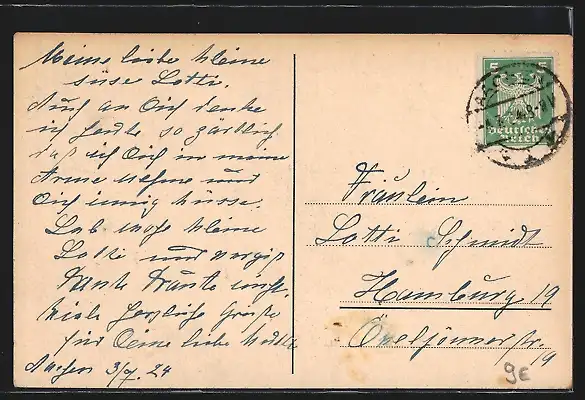 Meine liebe kleine
süse Lotti.
Auch an Dich denke
ich heute so zärtlich
daß ich Dich in meine
Arme nehme und
Dich innig küsse.
Leb wohl kleine
Lotti und vergiß
Tante nicht.
Viele herzliche Grüße
für Deine liebe
3/7. 24
5 5
Deutsches
Reich
Fräulein
Lotti Schmidt
Hamburg 19
19
9E